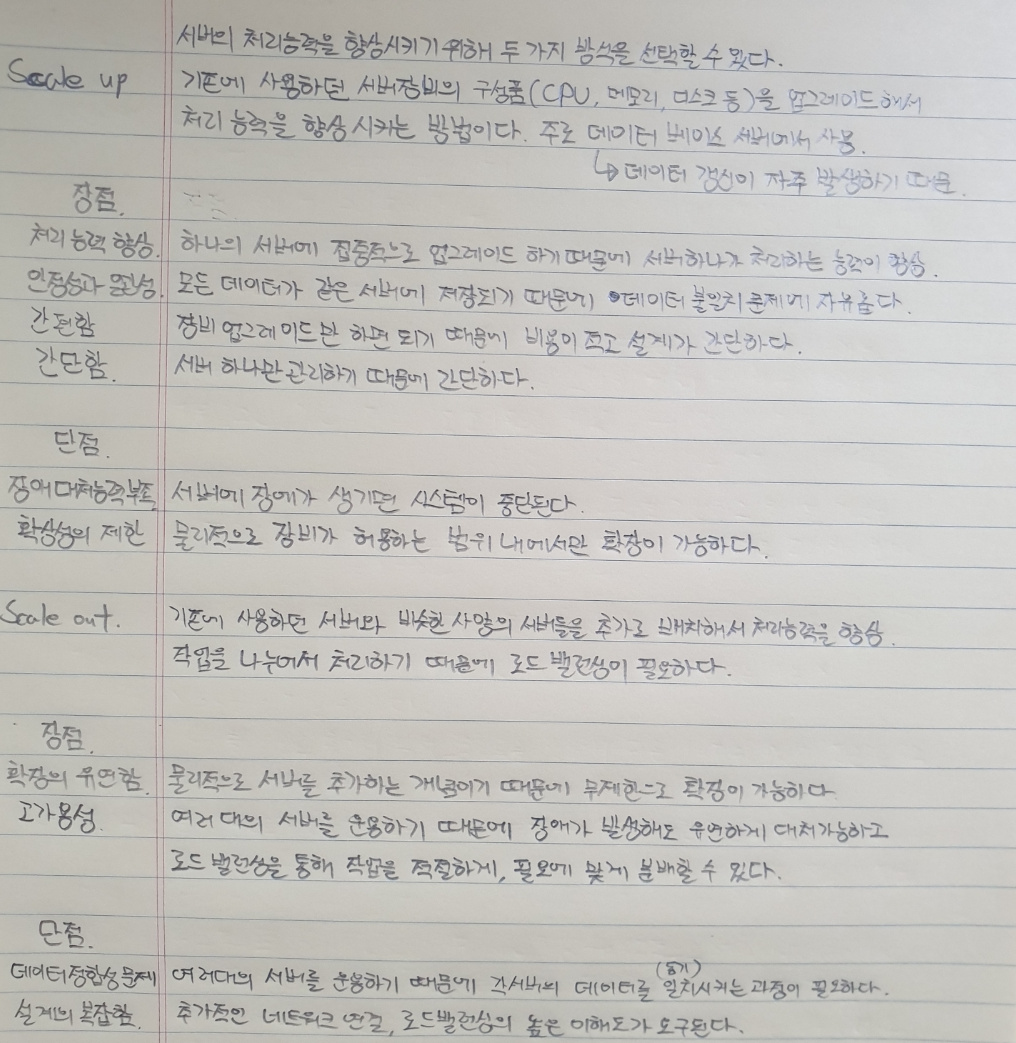 서버의 처리능력을 향상시키기 위해 두 가지 방식을 선택할 수 있다.
Scale up 기존에 사용하던 서버장비의 구성품(CPU, 메모리, 디스크 등)을 업그레이드해서
처리 능력을 향상 시키는 방법이다. 주로 데이터 베이스 서버에서 사용.
↳ 데이터 갱신이 자주 발생하기 때문
장점.
처리 능력 향상. 하나의 서버에 집중적으로 업그레이드 하기 때문에 서버하나가 처리하는 능력이 향상.
안정성과 모든 데이터가 같은 서버에 저장되기 때문에 데이터 불일치 문제에 자유롭다
간편함 장비 업그레이드만 하면 되기 때문에 비용이 적고 설계가 간단하다.
간단함. 서버 하나만 관리하기 때문에 간단하다.
단점.
장애대처능력부족 서버에 장애가 생기면 시스템이 중단된다.
확장성의 제한 물리적으로 장비가 허용하는 범위 내에서만 확장이 가능하다.
Scale out. 기존에 사용하던 서버와 비슷한 사양의 서버들을 추가로 배치해서 처리능력을 향상.
작업을 나누어서 처리하기 때문에 로드 밸런싱이 필요하다.
장점.
확장의 유연함. 물리적으로 서버를 추가하는 개념이기 때문에 무제한으로 확장이 가능하다
고가용성. 여러 대의 서버를 운용하기 때문에 장애가 발생해도 유연하게 대처가능하고
로드 밸런싱을 통해 작업을 적절하게, 필요에 맞게 분배할 수 있다.
단점.
데이터정합성문제 여러대의 서버를 운용하기 때문에 각서버의 데이터를 일치시키는 과정이 필요하다.
(동기)
설계의 복잡함. 추가적인 네트워크 연결, 로드밸런싱의 높은 이해도가 요구된다.